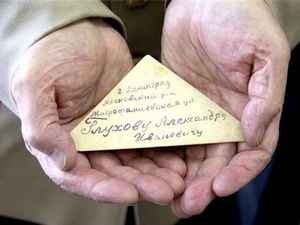 г. Ленинград
Московский р-н
Митрофаньевская ул
Глухову Александру
Ивановичу